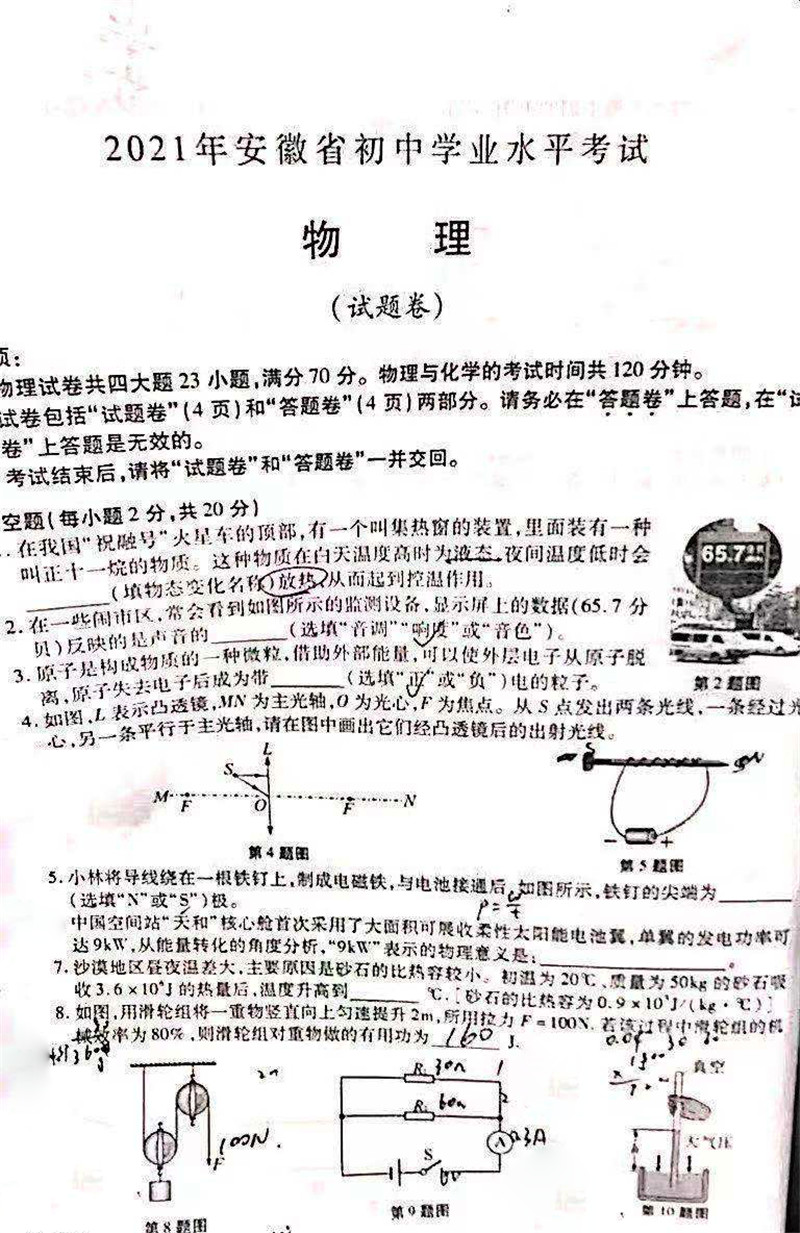 2021年安徽省初中学业水平考试
物 理
(试题卷)
项:
物理试卷共四大题23小题,满分70分。物理与化学的考试时间共120分钟。
试卷包括“试题卷”(4页)和“答题卷”(4页)两部分。请务必在“答题卷”上答题,在“试
卷”上答题是无效的。
考试结束后,请将“试题卷”和“答题卷”一并交回。
空题(每小题2分,共20分)
在我国“祝融号”火星车的顶部,有一个叫集热窗的装置,里面装有一种
叫正十一烷的物质。这种物质在白天温度高时为液态,夜间温度低时会
______(填物态变化名称)放热,从而起到控温作用。
2.在一些闹市区,常会看到如图所示的监测设备,显示屏上的数据(65.7分
贝)反映的是声音的______(选填“音调”“响度”或“音色”)。
3.原子是构成物质的一种微粒,借助外部能量,可以使外层电子从原子脱
离,原子失去电子后成为带______(选填“正”或“负”)电的粒子。
65.7
第2题图
4.如图,L表示凸透镜,MN为主光轴,O为光心,F为焦点。从S点发出两条光线,一条经过光
心,另一条平行于主光轴,请在图中画出它们经凸透镜后的出射光线。
L
S
M F O F N
第4题图
S N
- +
第5题图
5.小林将导线绕在一根铁钉上,制成电磁铁,与电池接通后,如图所示,铁钉的尖端为______
(选填“N”或“S”)极。
中国空间站“天和”核心舱首次采用了大面积可展收柔性太阳能电池翼,单翼的发电功率可
达9kW,从能量转化的角度分析,“9kW”表示的物理意义是:______。
7.沙漠地区昼夜温差大,主要原因是砂石的比热容较小。初温为20℃、质量为50kg的砂石吸
收3.6×10⁴J的热量后,温度升高到______℃。[砂石的比热容为0.9×10³J/(kg·℃)]
8.如图,用滑轮组将一重物竖直向上匀速提升2m,所用拉力F=100N。若该过程中滑轮组的机
械效率为80%,则滑轮组对重物做的有用功为 160 J.
100N.
F
第8题图
R₁ 30Ω
R₂ 60Ω
A 0.3A
S
第9题图
真空
大气压
h
第10题图